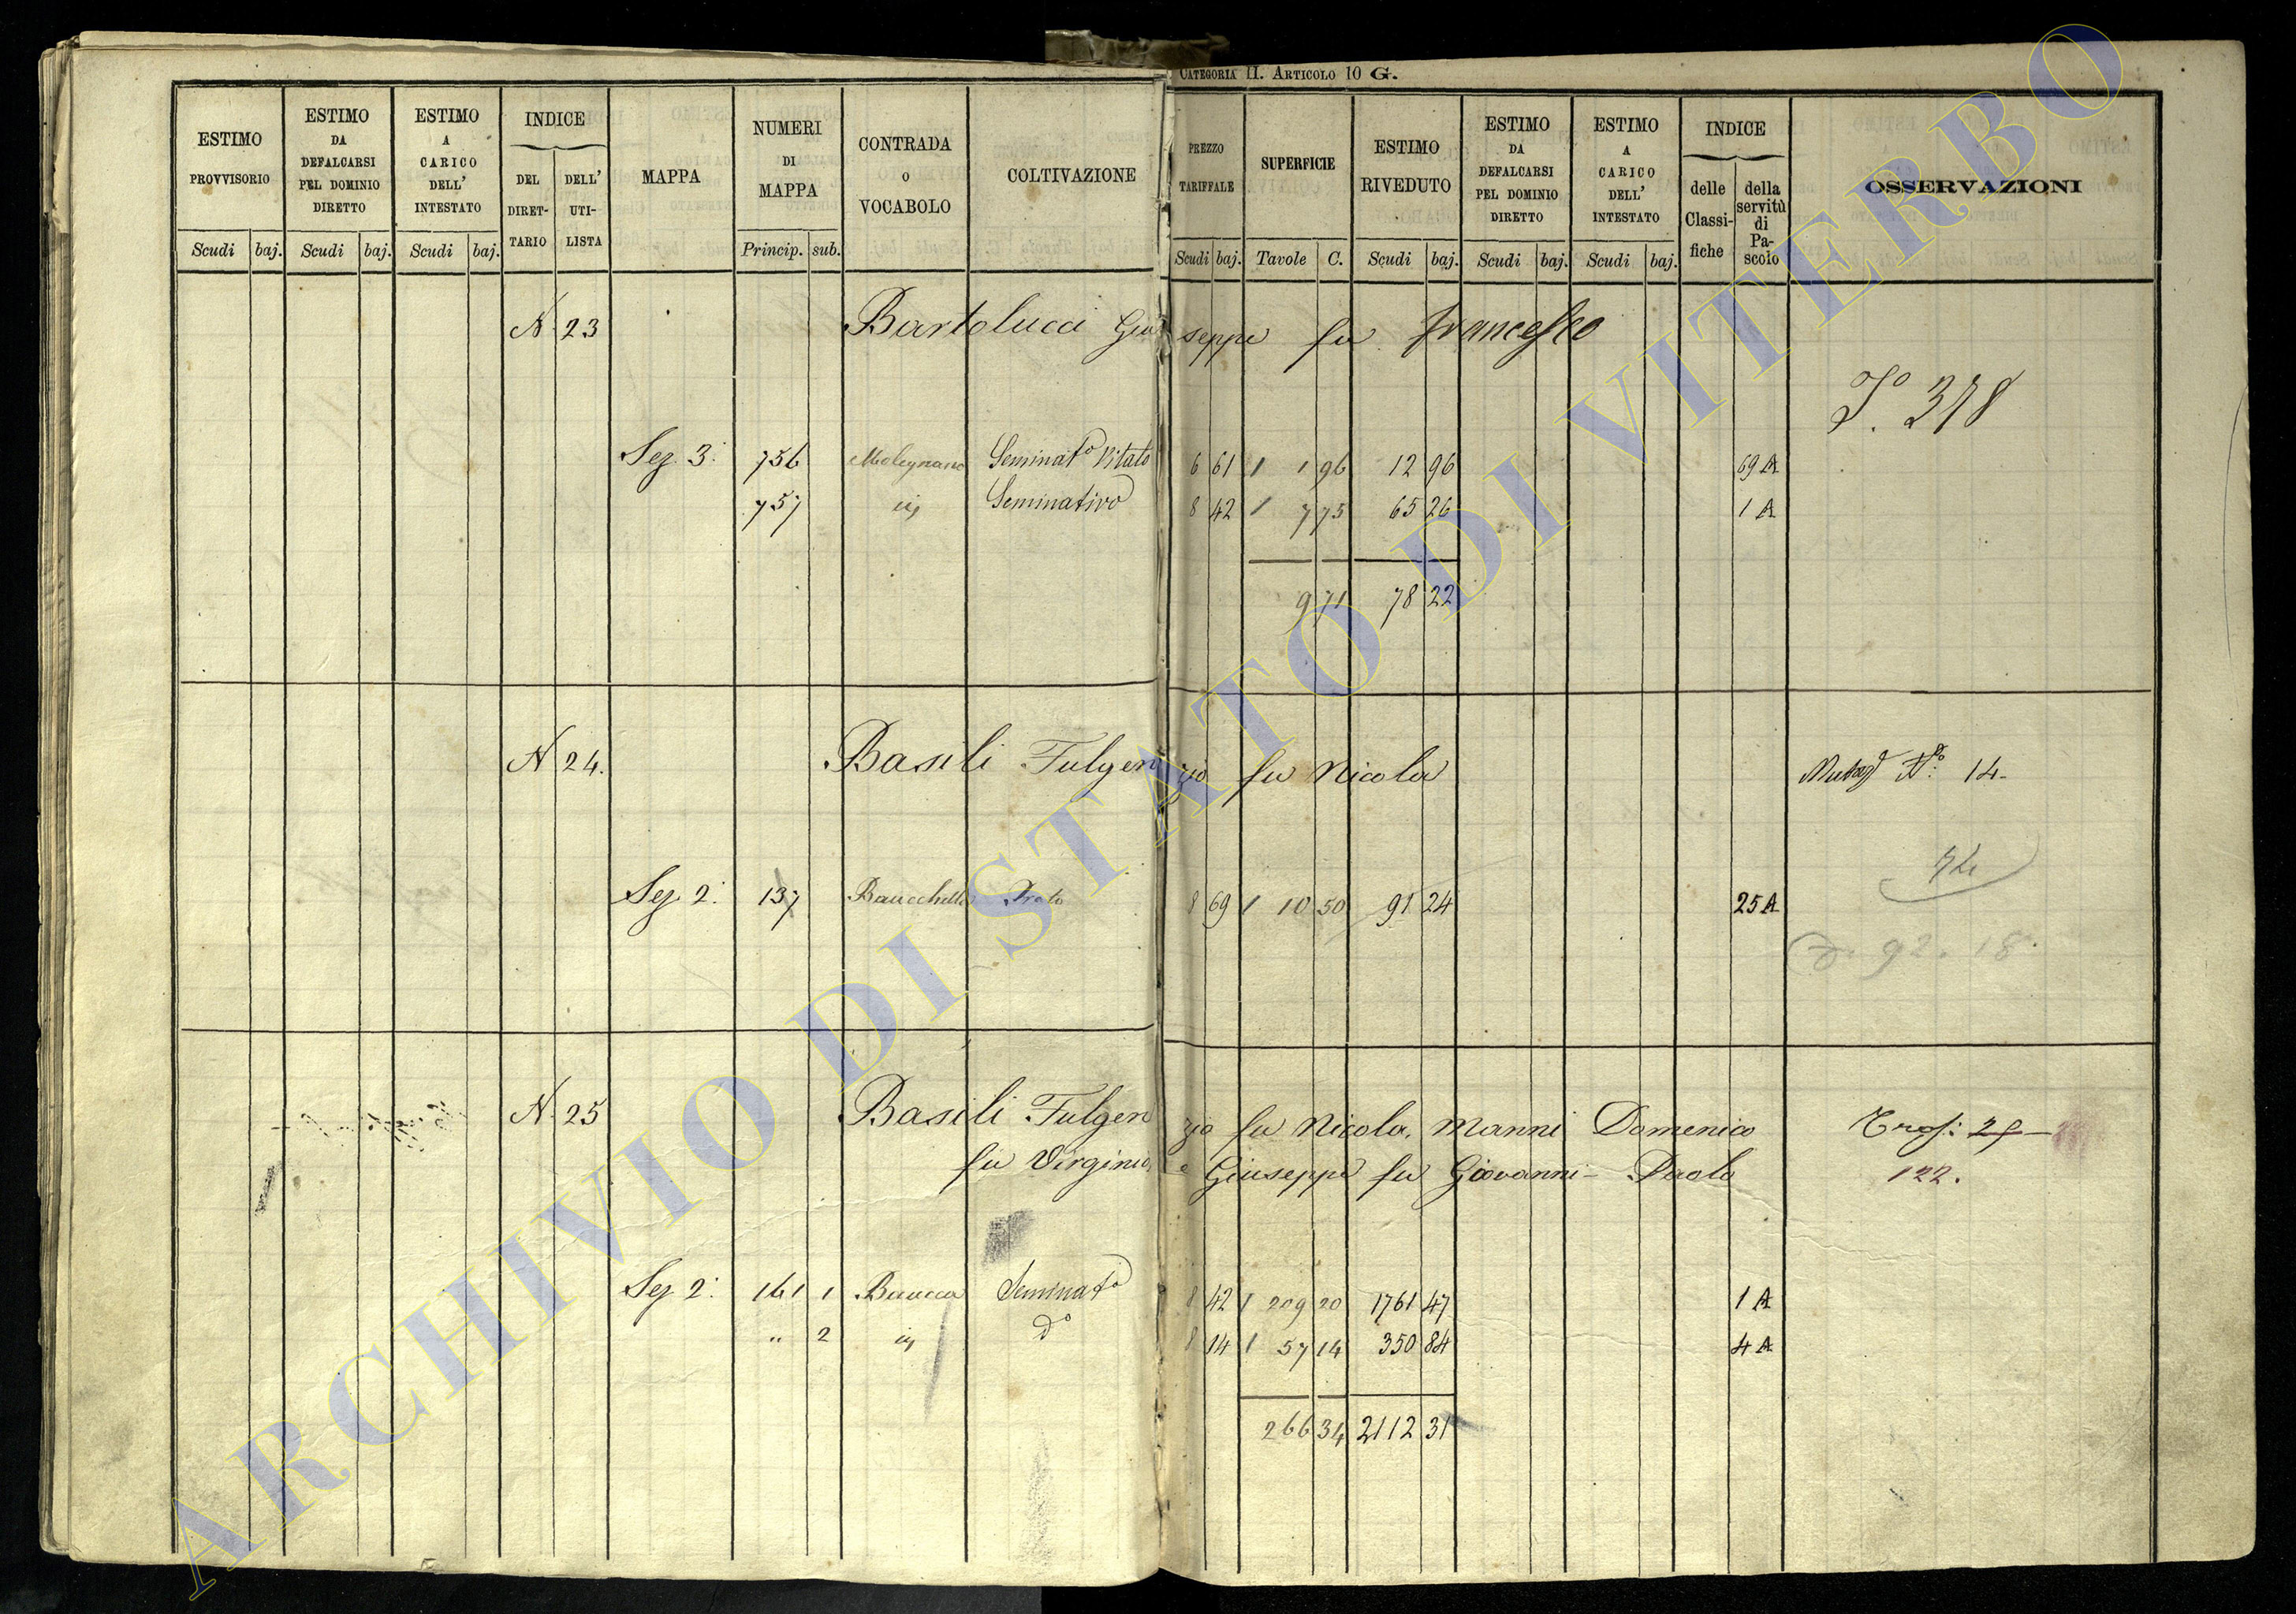 CATEGORIA II. ARTICOLO 10 G.
ESTIMO PROVVISORIO | ESTIMO DA DEFALCARSI PEL DOMINIO DIRETTO | ESTIMO A CARICO DELL' INTESTATO | INDICE DEL DIRET-TARIO | DELL' UTI-LISTA | MAPPA | NUMERI DI MAPPA | CONTRADA O VOCABOLO | COLTIVAZIONE | PREZZO TARIFFALE | SUPERFICIE | ESTIMO RIVEDUTO | ESTIMO DA DEFALCARSI PEL DOMINIO DIRETTO | ESTIMO A CARICO DELL' INTESTATO | INDICE delle Classi-fiche | della servitù di Pa-scolo | OSSERVAZIONI
Scudi baj. Scudi baj. Scudi baj. Princip. sub. Scudi baj. Tavole C. Scudi baj. Scudi baj. Scudi baj.
N. 23 Bartolucci Giuseppe fu Francesco
378
Sez. 3. 756 Seminato Vitato 6 61 1 1 96 12 96 69 A
757 Seminativo 8 42 1 7 75 65 26 1 A
9 71 78 22
N 24. Basili Fulgenzio fu Nicola N° 14
74
Sez. 2. 137 Prato 8 69 1 10 50 91 24 25 A
92. 18
N. 25 Basili Fulgenzio fu Nicola, Manni Domenico
fu Virginio, e Giuseppe fu Giovanni-Paolo
29
122.
Sez. 2. 161 1 Baucca Seminato 8 42 1 209 20 1761 47 1 A
" 2 D° 14 1 57 14 350 84 4 A
266 34 2112 31
ARCHIVIO DI STATO DI VITERBO